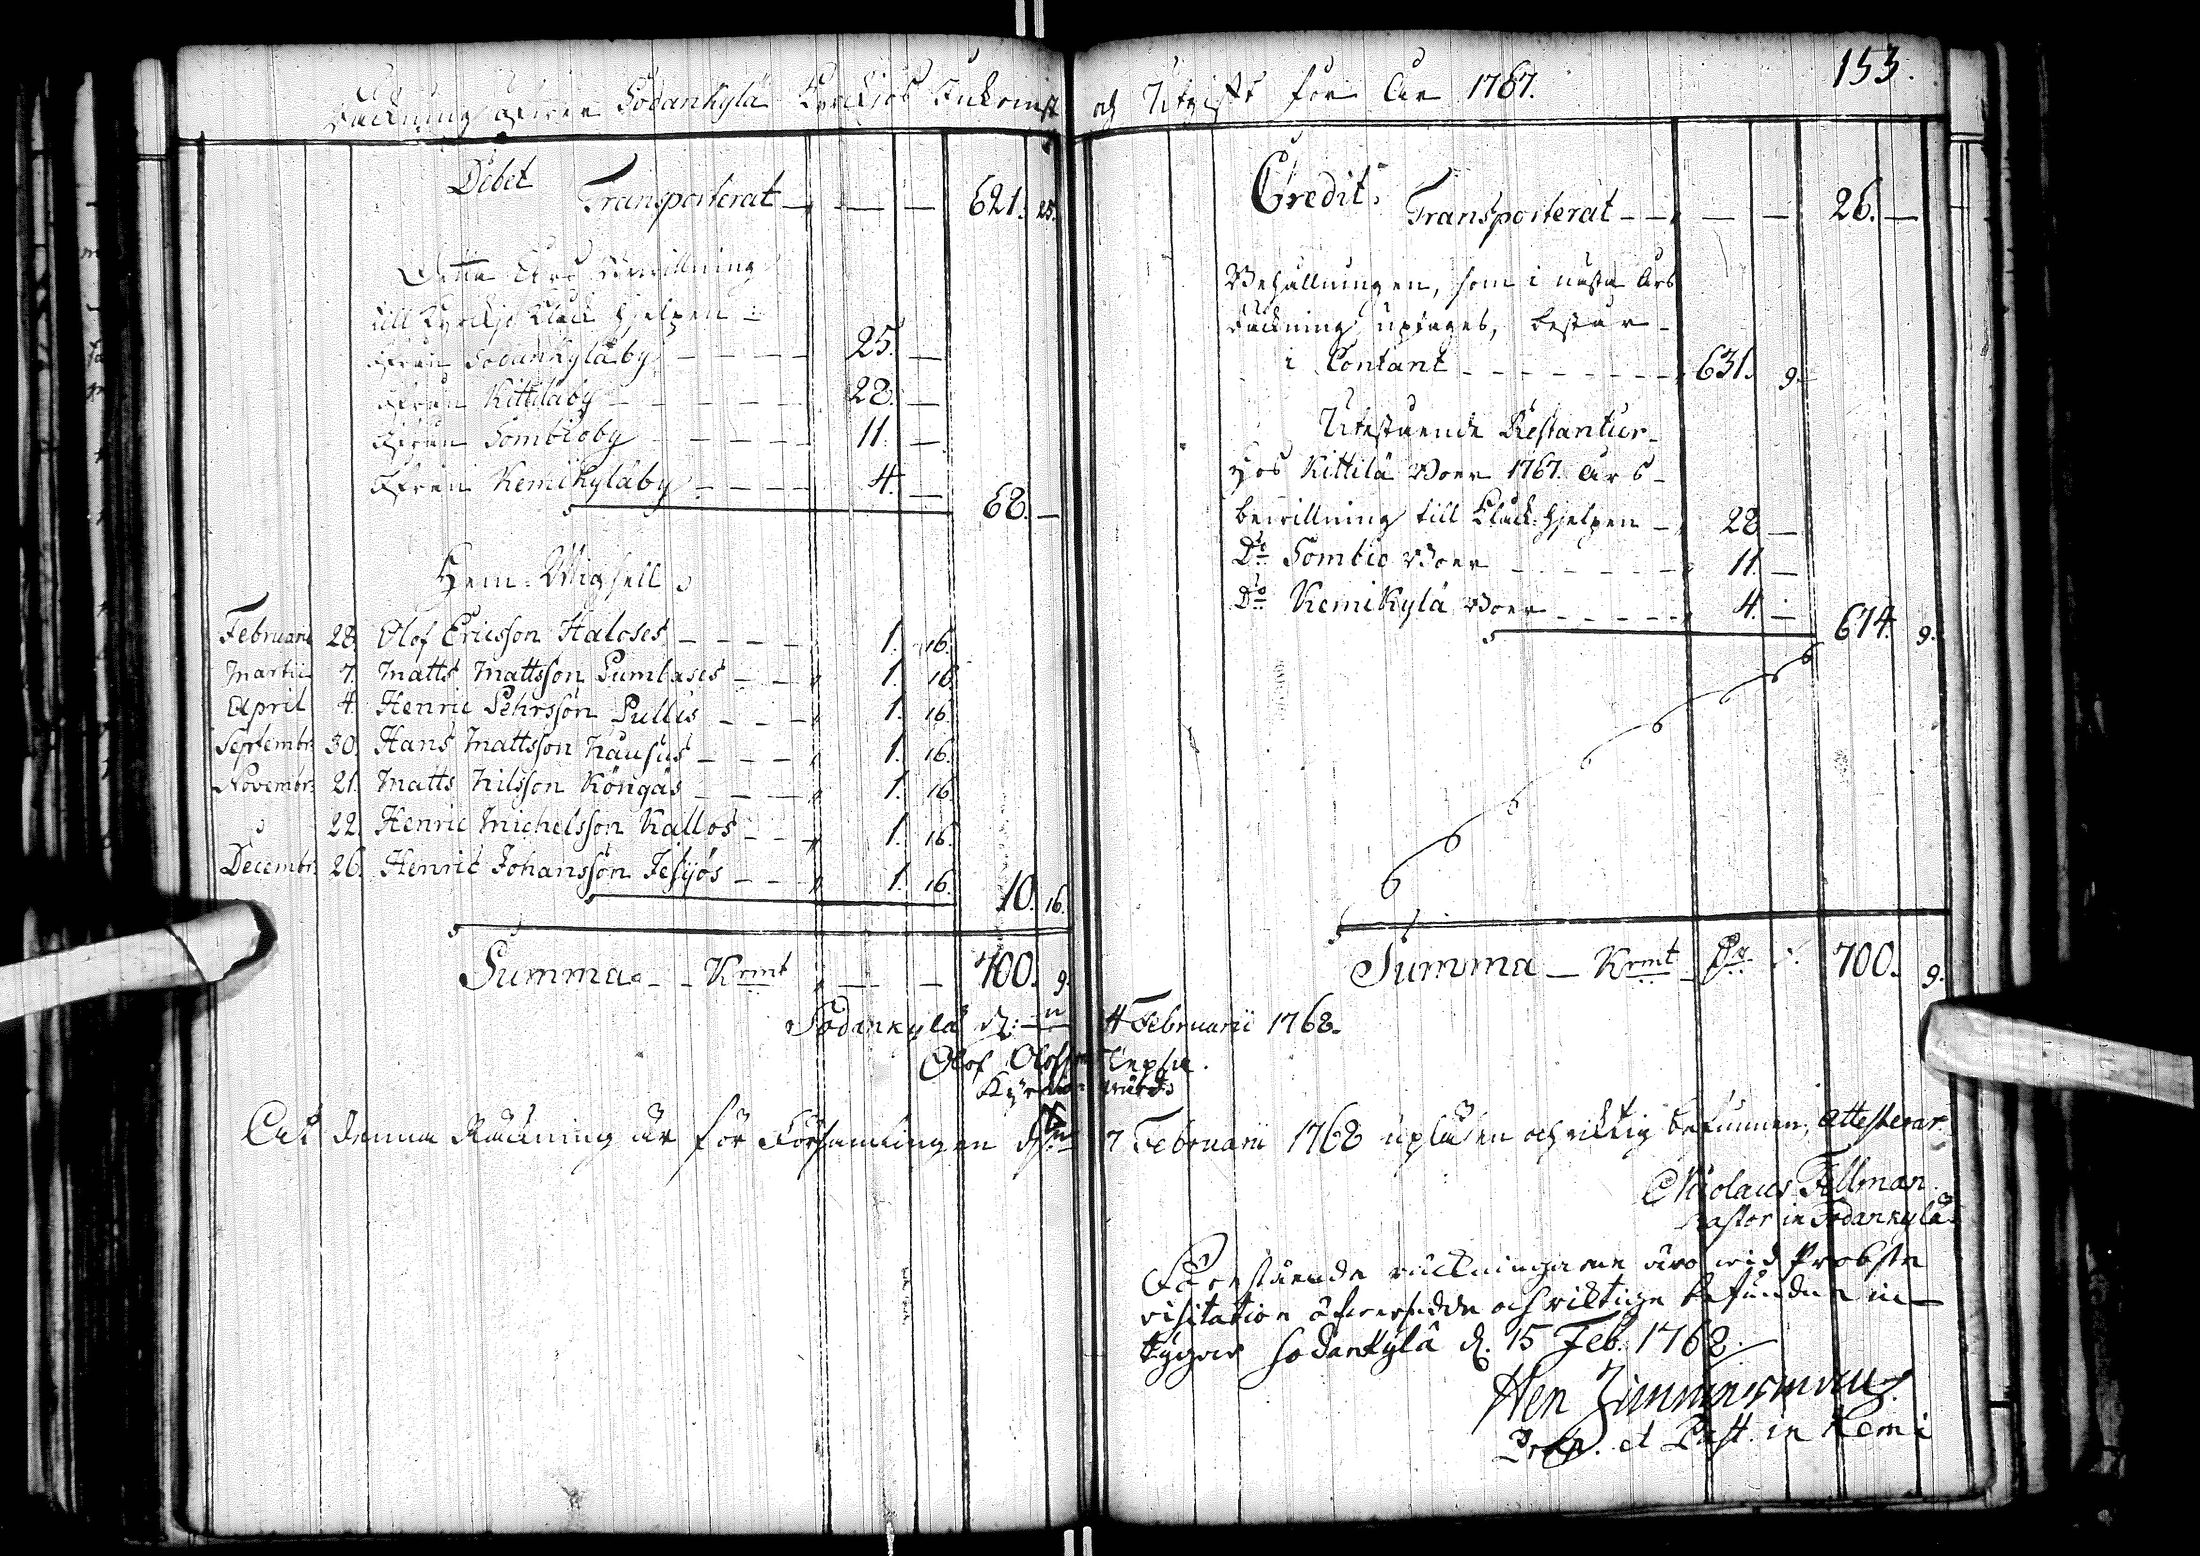 Räkning öfver Sodankylä Kyrkios Inkomst
Debet
Transporterat — — — 621. 25.
Detta Års Bewillning
till Kyrkjo Klåck hjelpen:
Ifrån Sodankyläby — — — — 25. —
Ifrån Kittiläby — — — — — 28. —
Ifrån Sombioby — — — — 11. —
Ifrån Kemikyläby — — — — 4. —
68. —
Hem-Migsell
Februarii 28. Olof Ericsson Haloses — — — — 1. 16.
Martii 7. Matts Mattsson Pumbases — — 1. 16.
April 4. Henric Pehrsson Pullis — — — 1. 16.
Septembr: 30. Hans Mattsson Nausus — — — 1. 16.
Novembr: 21. Matts Nilsson Köngäs — — — 1. 16.
22. Henric Michelsson Kallos — — 1. 16.
Decembr: 26. Henric Johansson Jesyös — — 1. 16.
10. 16.
Summa — — Krmt — — 700. 9.
och Utgift för År 1767. 153.
Credit.
Transporterat — — — — 26. —
Behållningen, som i nästa Års
Räkning uptages, består
i Contant — — — — — — — 631. 9.
Utestående Restantier
hos Kittilä Boer 1767. års
bewillning till Klåck-hjelpen — 28 —
Do Sombio Boer — — — — — — 11. —
Do Kemikylä Boer — — — — — 4. —
674. 9.
Summa — Krmt 700. 9.
Sodankylä d: 4 Februarii 1768.
Olof Olofsson
Kyrkio wärd
At denna Räkning är för Församlingen d: 7 Februarii 1768 upläsen och riktig befunnen, attesterar
Nicolaus Fellman.
Pastor in Sodankylä
Förestående räkningarne äro wid Probste
visitation öfversedde och riktige befundne in-
tygar Sodankylä d. 15 Feb. 1768.
Hen Zimmermann
Præp. et Past. in Kemi